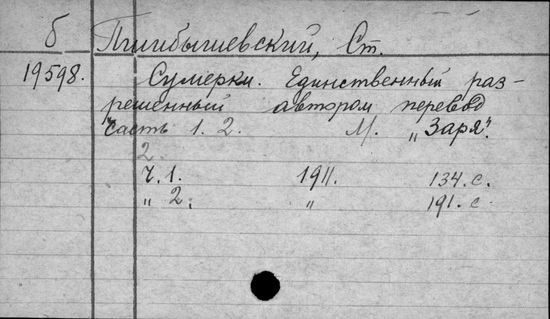 б Пшибышевский, Ст.
19598. Сумерки. Единственный раз-
решенный автором перевод
Часть 1. 2. М. „Заря".
2.
Ч. 1. 1911. 134. с.
„ 2. „ 191. с.